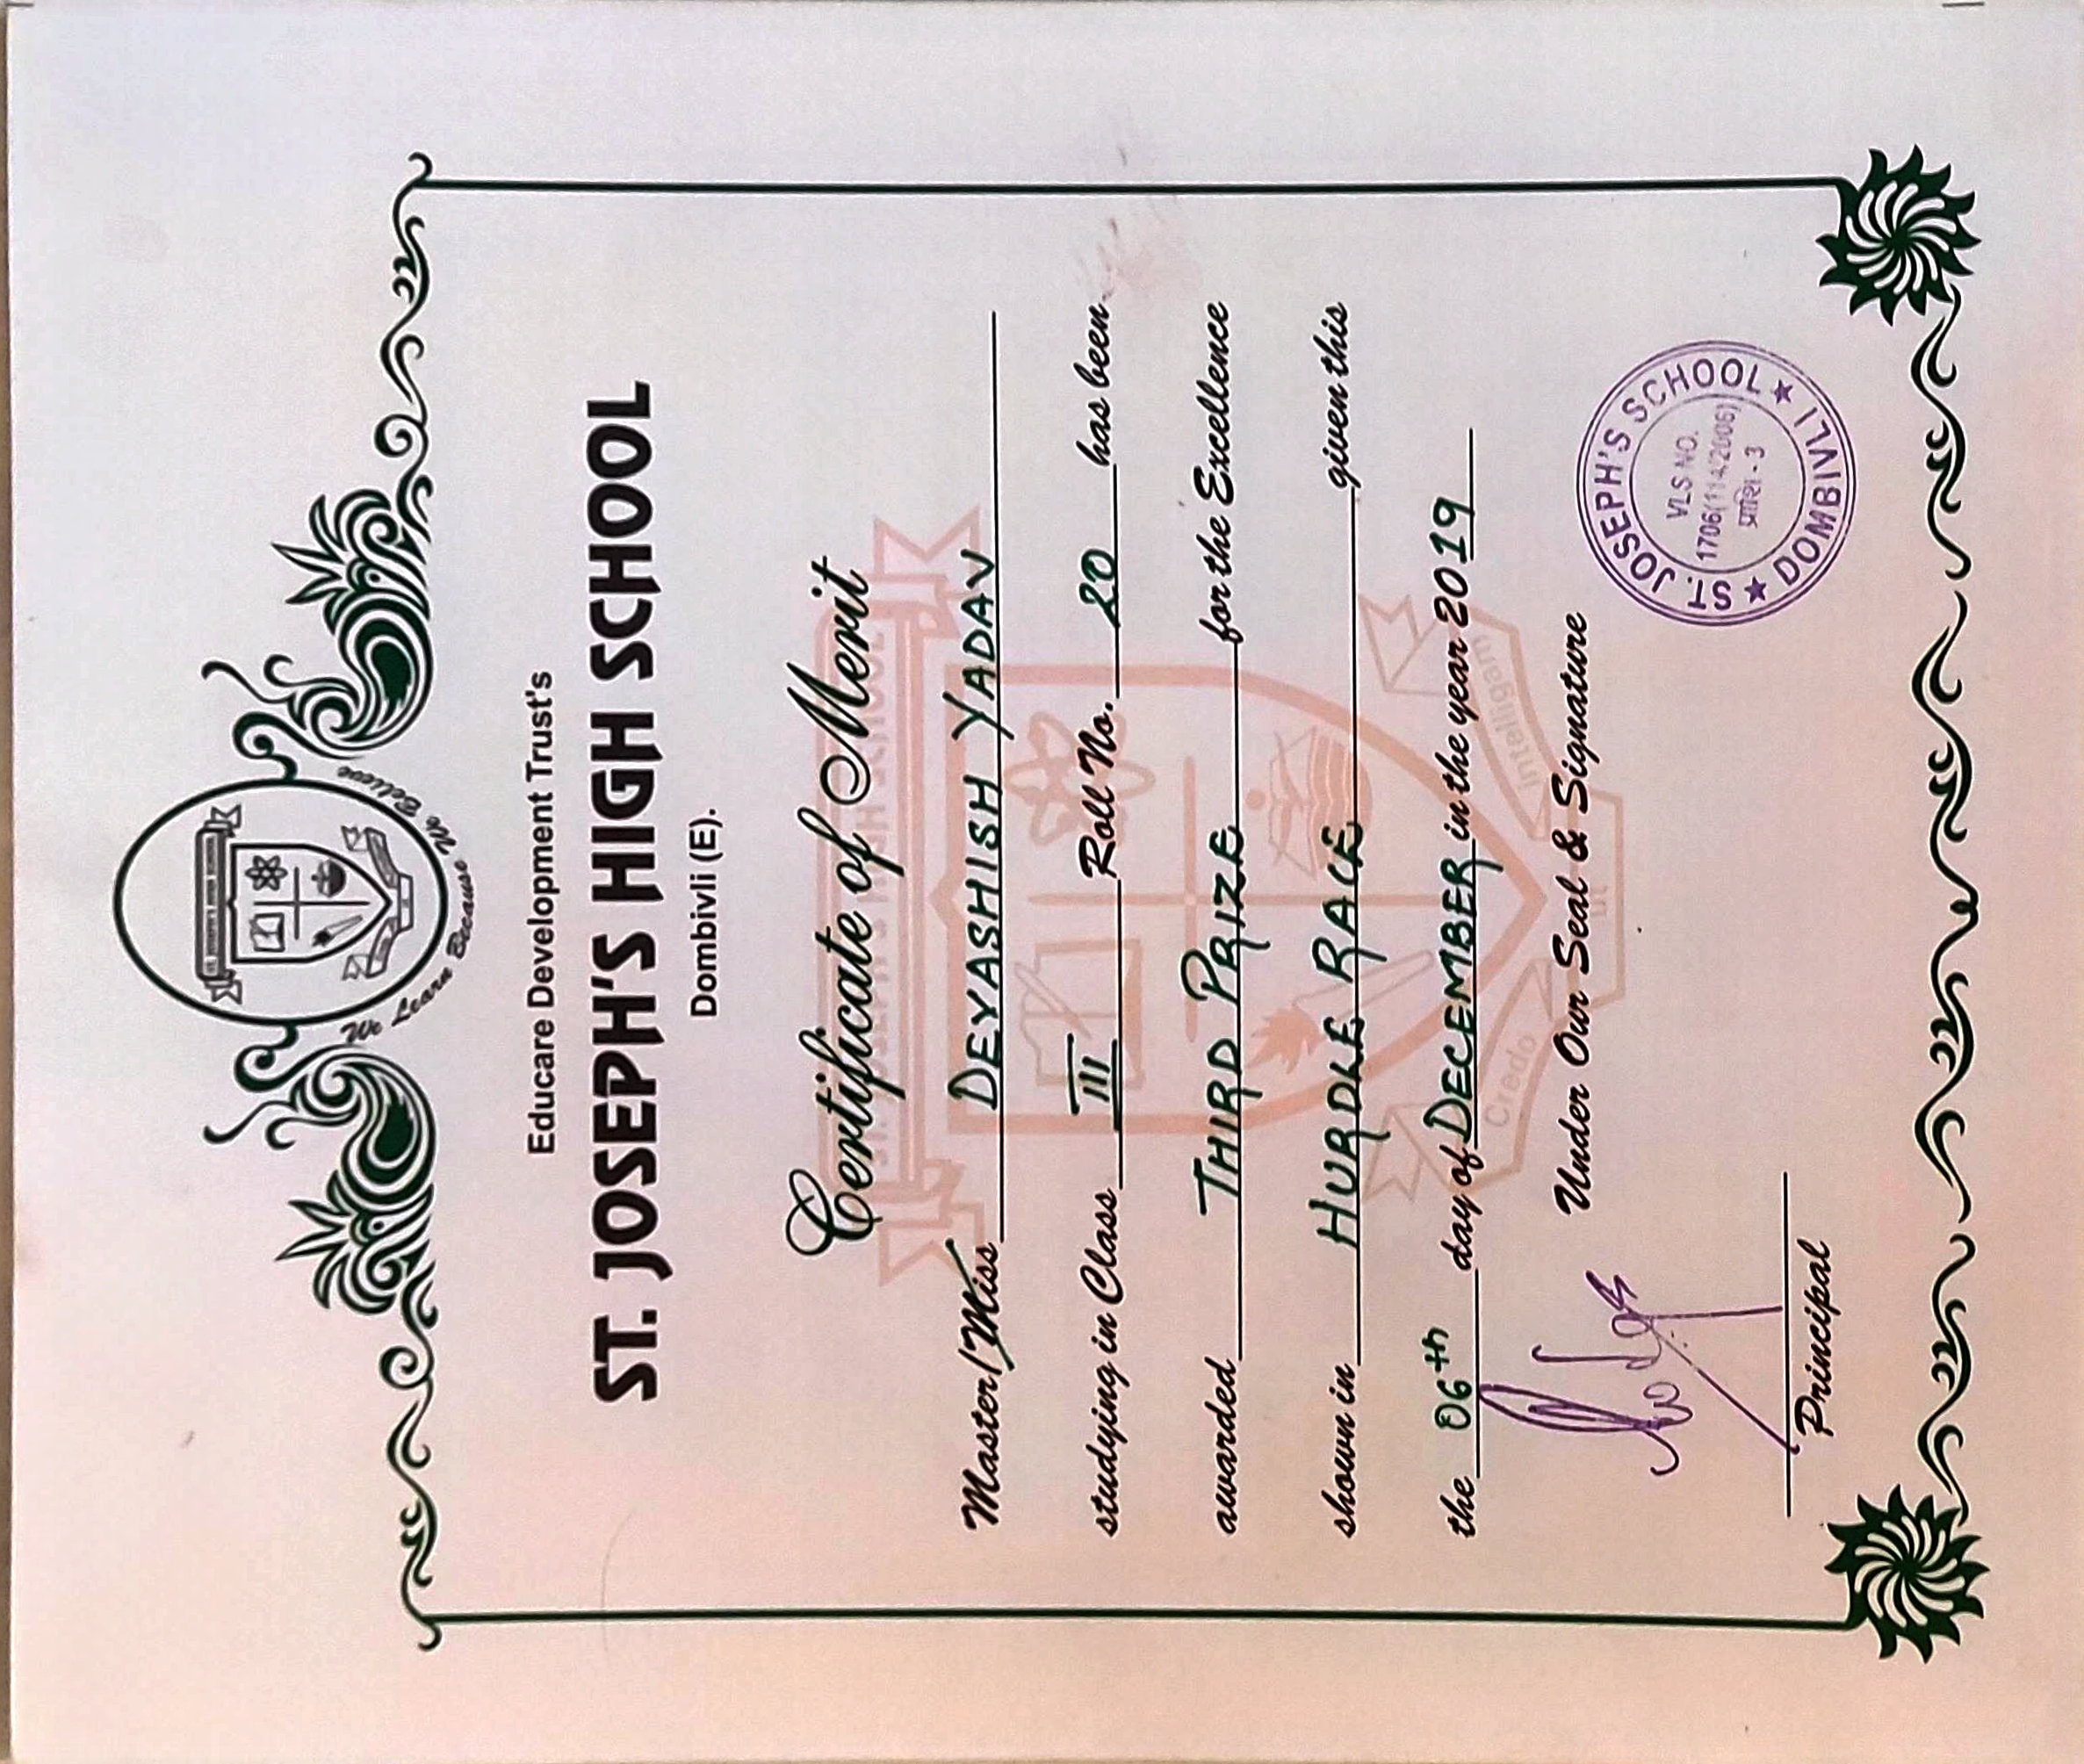 ST. JOSEPH'S HIGH SCHOOL
We Learn Because We Believe
Educare Development Trust's
ST. JOSEPH'S HIGH SCHOOL
Dombivli (E).
Certificate of Merit
ST. JOSEPH'S HIGH SCHOOL
Master/Miss DEVASHISH YADAV
studying in Class III Roll No. 20 has been
awarded THIRD PRIZE for the Excellence
shown in HURDLE RACE given this
the 06th day of DECEMBER in the year 2019
Credo intelligam
Under Our Seal & Signature
ut
ST. JOSEPH'S SCHOOL
VLS NO.
1706(114/2006)
प्राशि - 3
★ DOMBIVLI ★
Principal